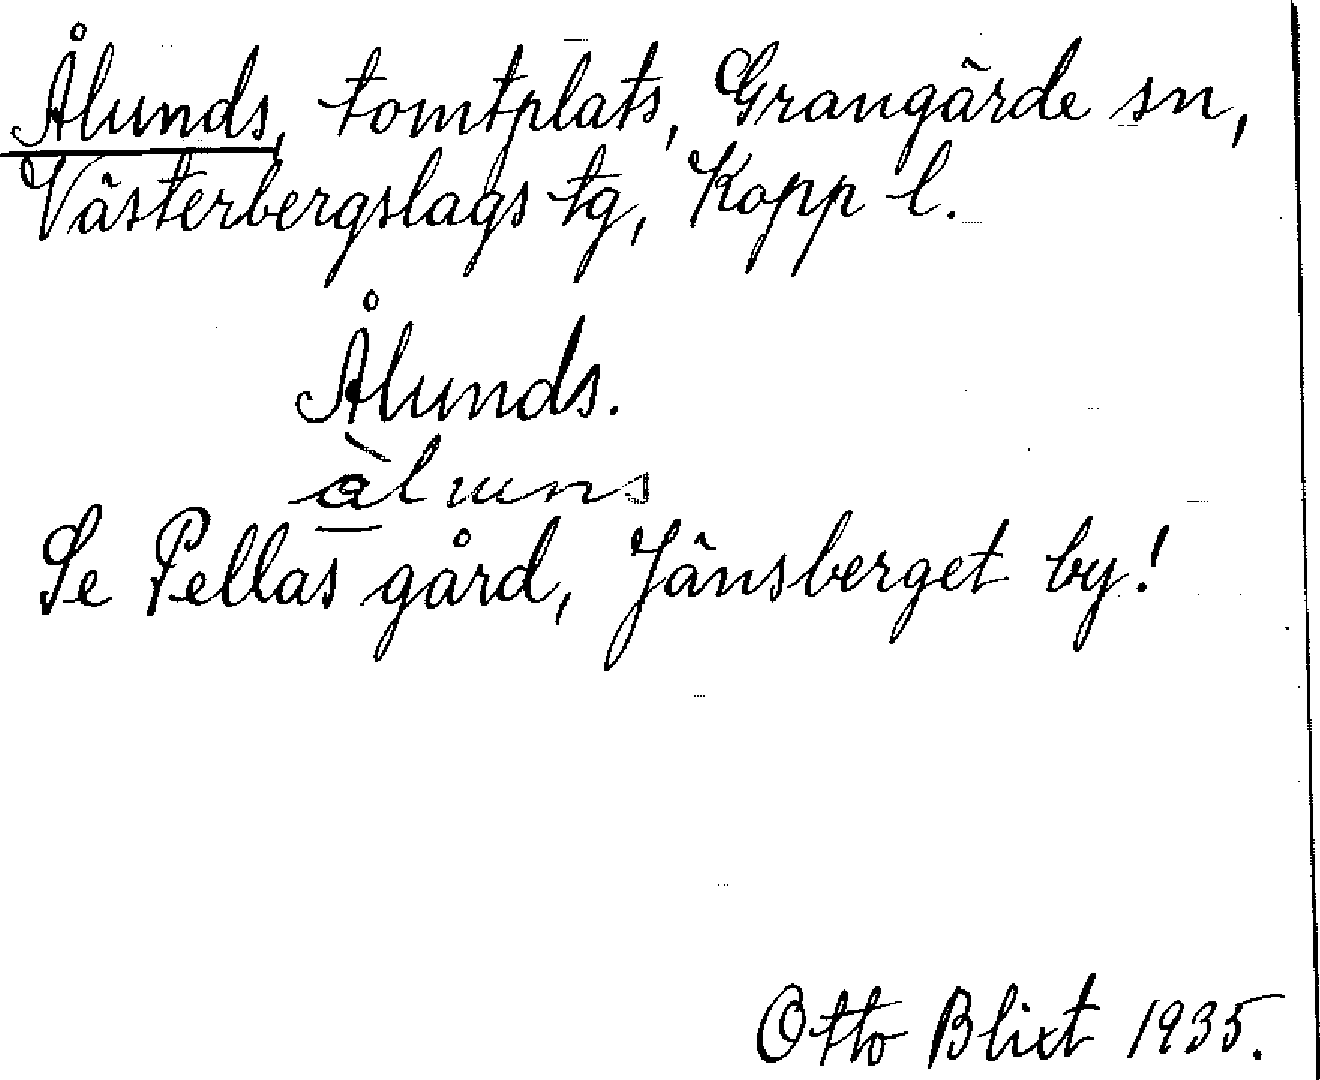 Ålunds, tomtplats, Grangärde sn,
Västerbergslags tg, Kopp l.
Ålunds.
Se Pellas gård, Jänsberget by!
Otto Blixt 1935.